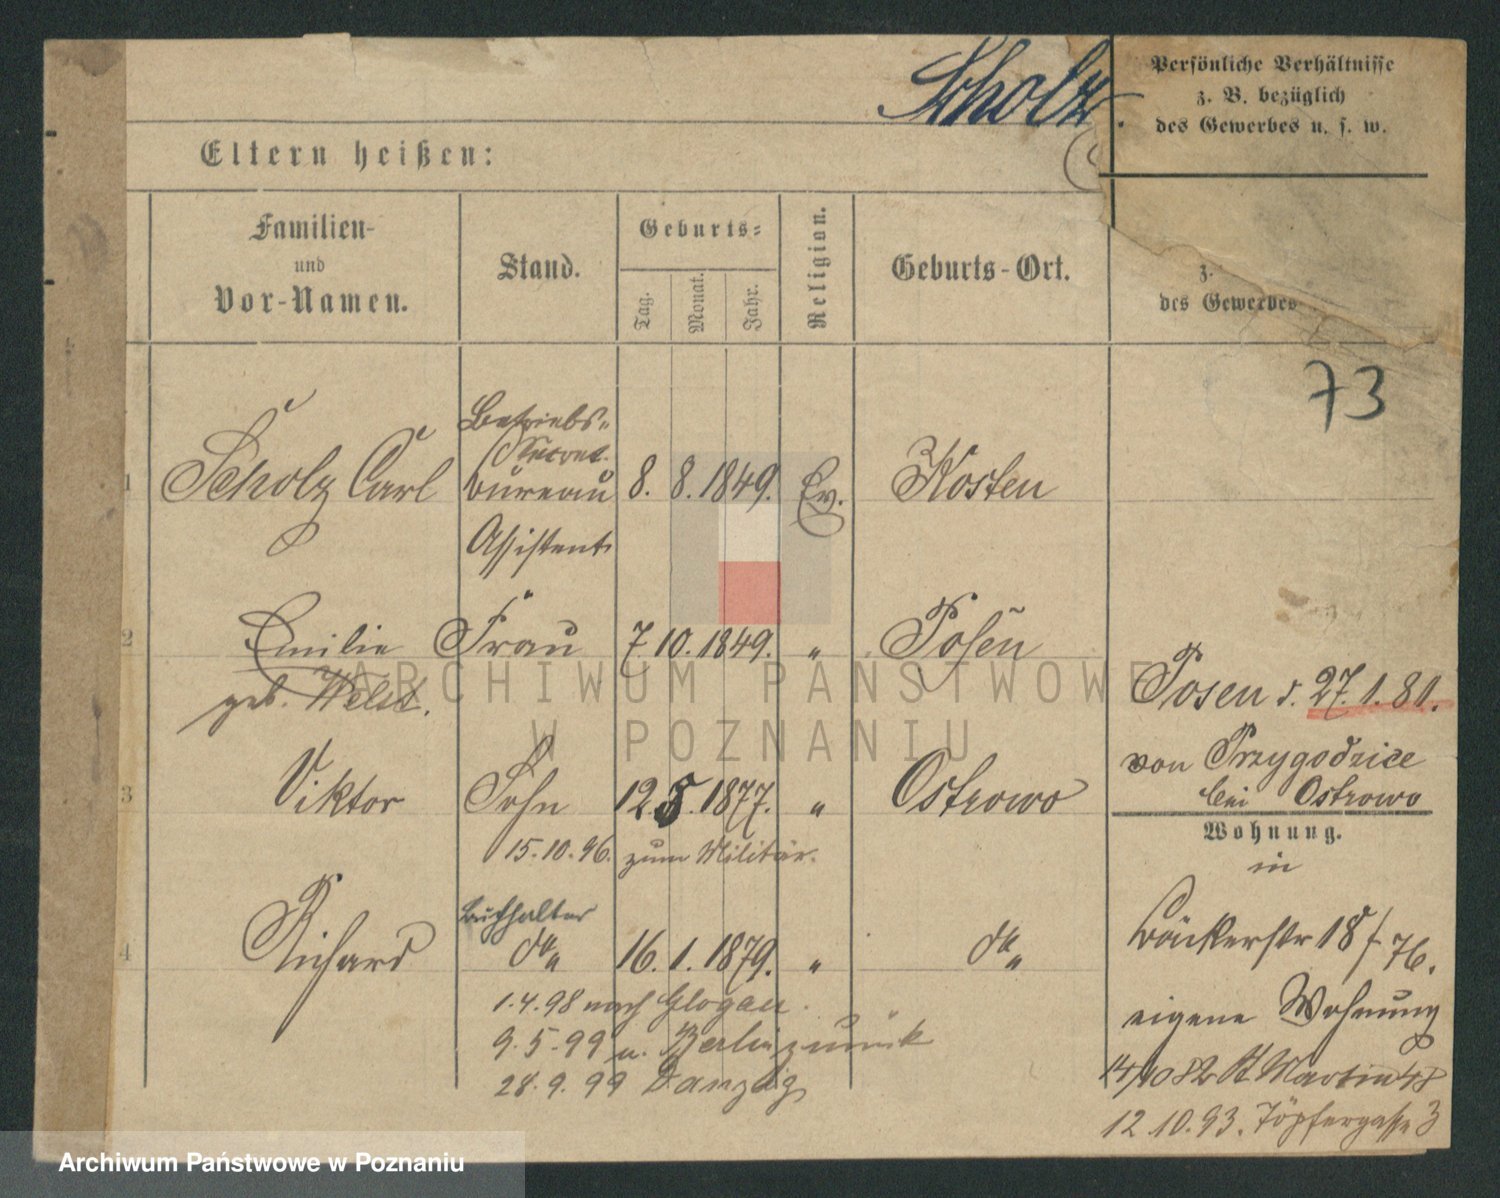 Scholz.
Persönliche Verhältnisse
z. B. bezüglich
des Gewerbes u. s. w.
Eltern heißen:
Familien-
und
Vor-Namen.
Stand.
Geburts-
Tag.
Monat.
Jahr.
Religion.
Geburts-Ort.
z.
des Gewerbes
73
Betriebs-
Secret.
1 Scholz Carl bureau 8. 8. 1849. Ev. Kosten
Assistent
2 Emilie Frau 7. 10. 1849. „ Posen
geb.
Posen d. 27.1.81.
von Przygodzice
bei Ostrowo
3 Viktor Sohn 12. 8. 1877. „ Ostrowo
15.10.96. zum Militär.
Wohnung.
in
Buchhalter
4 Richard do „ 16. 1. 1879. „ do „
Bäckerstr 18 / 76.
1.4.98 nach Glogau.
eigene Wohnung
9.5.99 u. Berlin zurück
28.9.99 Danzig
14/10 82 St Martin 48
12.10.93. Töpfergasse 3
ARCHIWUM PAŃSTWOWE
W POZNANIU
Archiwum Państwowe w Poznaniu